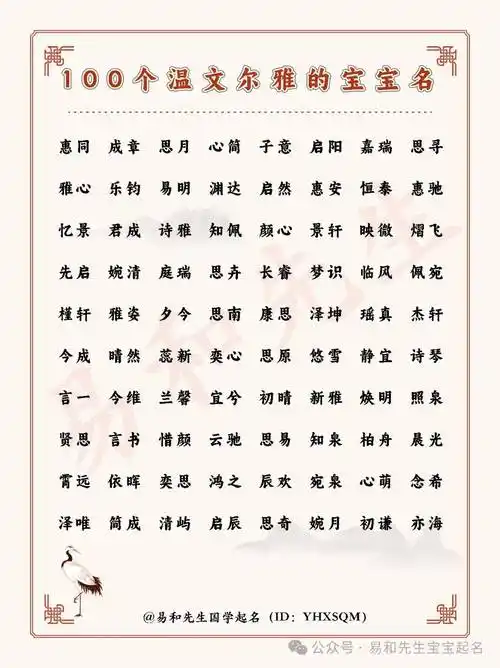 100个温文尔雅的宝宝名
惠同 成章 思月 心简 子意 启阳 嘉瑞 思寻
雅心 乐钧 易明 渊达 启然 惠安 恒泰 惠驰
忆景 君成 诗雅 知佩 颜心 景轩 映微 熠飞
先启 婉清 庭瑞 思卉 长睿 梦识 临风 佩宛
槿轩 雅姿 夕今 思南 康思 泽坤 瑶真 杰轩
今成 晴然 蕊新 奕心 思原 悠雪 静宜 诗琴
言一 今维 兰馨 宜兮 初晴 新雅 焕明 照泉
贤思 言书 惜颜 云驰 思易 知泉 柏舟 晨光
霄远 依晖 奕思 鸿之 辰欢 宛泉 心萌 念希
泽唯 简成 清屿 启辰 思奇 婉月 初谦 亦海
易和先生
@易和先生国学起名（ID：YHXSQM）
公众号 · 易和先生宝宝起名